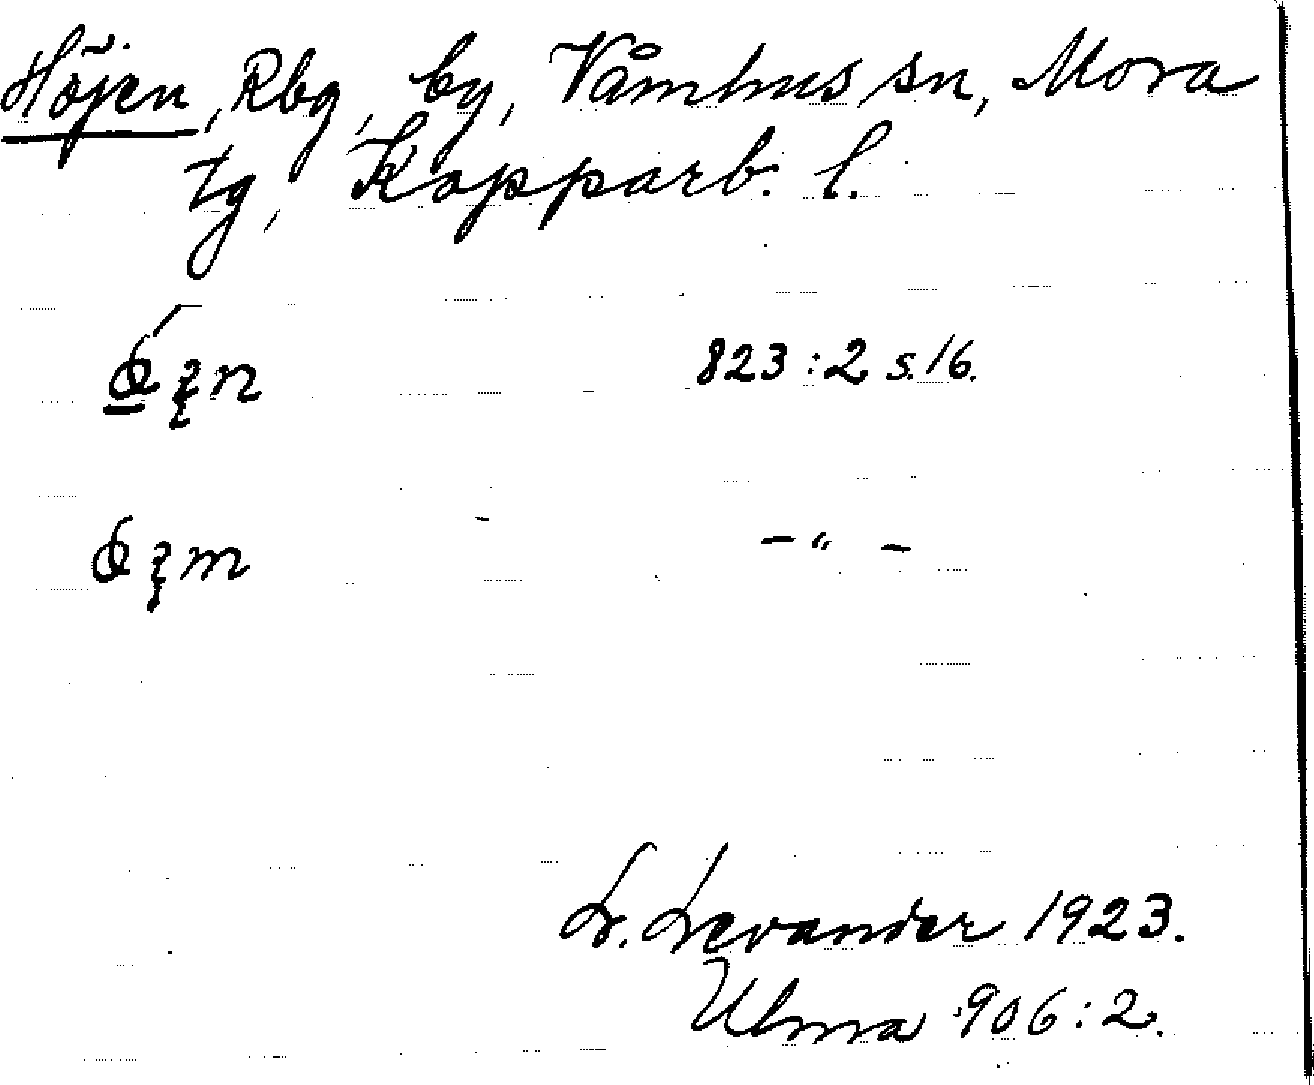 Höjen, Rbg, by, Våmhus sn, Mora
tg, Kopparb. l.
823:2 s.16.
–„–
L. Levander 1923.
Ulma 906:2.